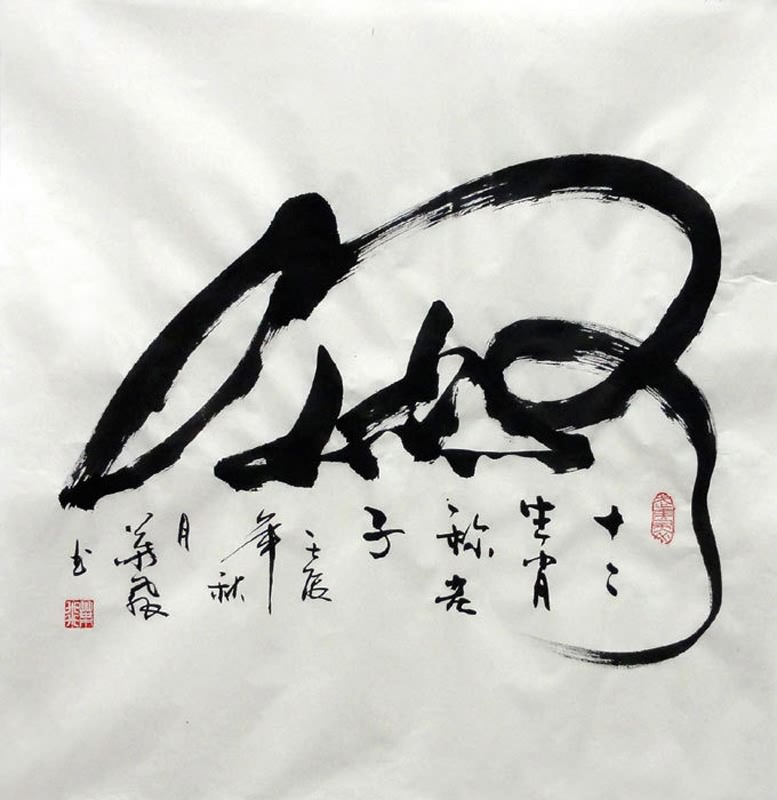 鼠
十二
生肖
称老
子
壬辰
年
秋
月
书